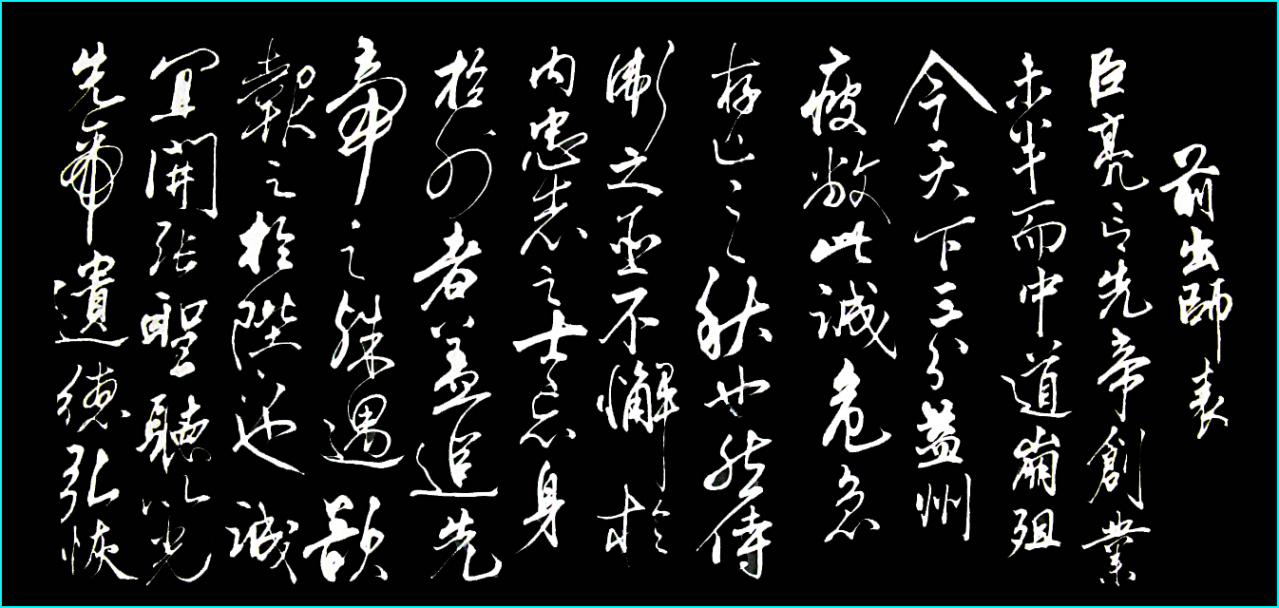 前出師表
臣亮言先帝創業
未半而中道崩殂
今天下三分益州
疲敝此誠危急
存亡之秋也然侍
衛之臣不懈於
内忠志之士忘身
於外者蓋追先
帝之殊遇欲
報之於陛下也誠
宜開張聖聽以光
先帝遺德弘恢